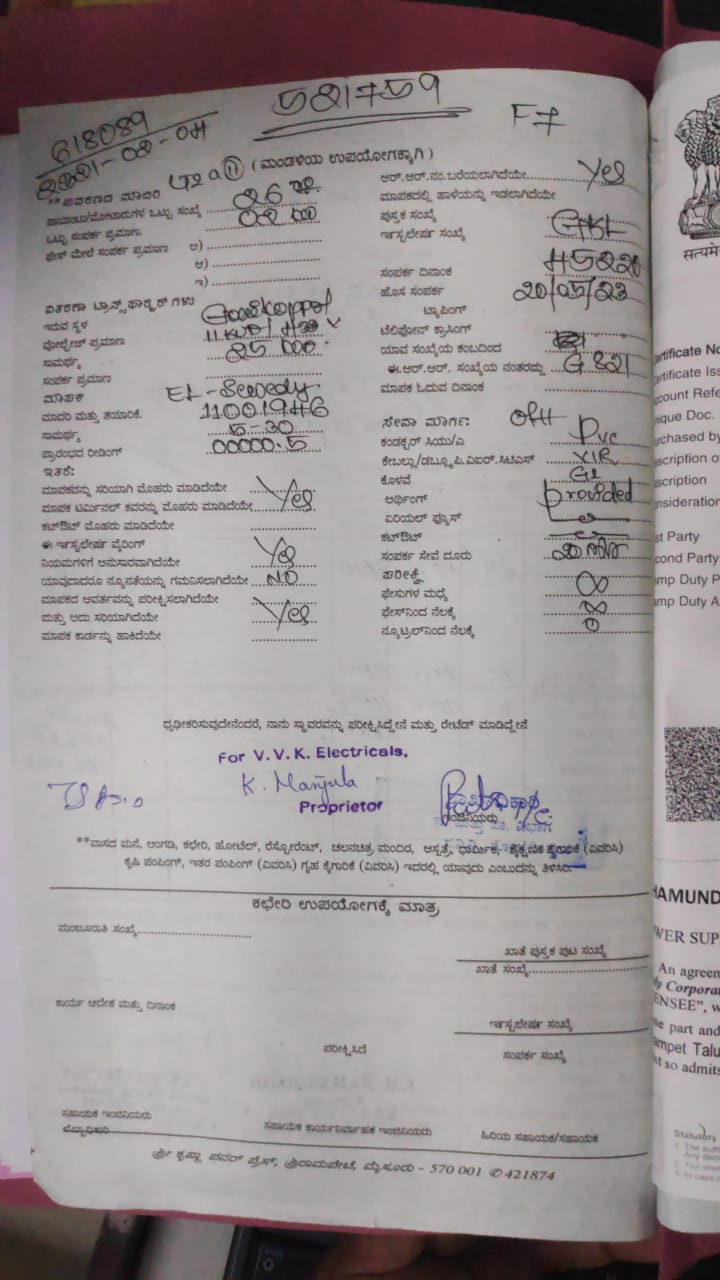 618089
581759
F7
(ಮಂಡಳಿಯ ಉಪಯೋಗಕ್ಕಾಗಿ)
ಪಾಯಿಂಟು/ಮೋಟಾರುಗಳ ಒಟ್ಟು ಸಂಖ್ಯೆ
ಒಟ್ಟು ಸಂಪರ್ಕ ಪ್ರಮಾಣ.
ಫೇಸ್ ಮೇಲೆ ಸಂಪರ್ಕ ಪ್ರಮಾಣ ಅ)
ಆ)
ಇ)
ವಿತರಣಾ ಟ್ರಾನ್ಸ್‌ಫಾರ್ಮರ್ ಗಳು
ಇರುವ ಸ್ಥಳ
ವೋಲ್ಟೇಜ್ ಪ್ರಮಾಣ
ಸಾಮರ್ಥ್ಯ 25
ಸಂಪರ್ಕ ಪ್ರಮಾಣ
ಮಾಪಕ
ಮಾದರಿ ಮತ್ತು ತಯಾರಿಕೆ.
ಸಾಮರ್ಥ್ಯ 5-30
ಪ್ರಾರಂಭದ ರೀಡಿಂಗ್ 00000.5
ಇತರೆ:
ಮಾಪಕವನ್ನು ಸರಿಯಾಗಿ ಮೊಹರು ಮಾಡಿದೆಯೇ
ಮಾಪಕ ಟರ್ಮಿನಲ್ ಕವರನ್ನು ಮೊಹರು ಮಾಡಿದೆಯೇ Yes
ಕಟ್‌ಔಟ್ ಮೊಹರು ಮಾಡಿದೆಯೇ
ಈ ಇನ್‌ಸ್ಟಲೇಷನ್ ವೈರಿಂಗ್
ನಿಯಮಗಳಿಗೆ ಅನುಸಾರವಾಗಿದೆಯೇ Yes
ಯಾವುದಾದರೂ ನ್ಯೂನತೆಯನ್ನು ಗಮನಿಸಲಾಗಿದೆಯೇ NO
ಮಾಪಕದ ಆವರ್ತವನ್ನು ಪರೀಕ್ಷಿಸಲಾಗಿದೆಯೇ
ಮತ್ತು ಅದು ಸರಿಯಾಗಿದೆಯೇ Yes
ಮಾಪಕ ಕಾರ್ಡನ್ನು ಹಾಕಿದೆಯೇ
ಆರ್.ಆರ್.ನಂ.ಬರೆಯಲಾಗಿದೆಯೇ Yes
ಮಾಪಕದಲ್ಲಿ ಹಾಳೆಯನ್ನು ಇಡಲಾಗಿದೆಯೇ
ಪುಸ್ತಕ ಸಂಖ್ಯೆ
ಇನ್‌ಸ್ಟಲೇಷನ್ ಸಂಖ್ಯೆ
ಸಂಪರ್ಕ ದಿನಾಂಕ
ಹೊಸ ಸಂಪರ್ಕ 20/05/23
ಟ್ಯಾಪಿಂಗ್
ಟೆಲಿಫೋನ್ ಕ್ರಾಸಿಂಗ್
ಯಾವ ಸಂಖ್ಯೆಯ ಕಂಬದಿಂದ
ಈ.ಆರ್.ಆರ್. ಸಂಖ್ಯೆಯ ನಂತರದ್ದು
ಮಾಪಕ ಓದುವ ದಿನಾಂಕ
ಸೇವಾ ಮಾರ್ಗ: OH
ಕಂಡಕ್ಟರ್ ಸಿಯು/ಎ PVC
ಕೇಬಲ್ಲು/ಡಬ್ಲ್ಯೂ.ಪಿ.ಐಆರ್.ಸಿಟಿಎಸ್ VIR
ಕೊಳವೆ GI
ಅರ್ಥಿಂಗ್ provided
ಏರಿಯಲ್ ಫ್ಯೂಸ್
ಕಟ್‌ಔಟ್
ಸಂಪರ್ಕ ಸೇವೆ ದೂರು
ಪರೀಕ್ಷೆ
ಫೇಸುಗಳ ಮಧ್ಯೆ ∞
ಫೇಸ್‌ನಿಂದ ನೆಲಕ್ಕೆ ∞
ನ್ಯೂಟ್ರಲ್‌ನಿಂದ ನೆಲಕ್ಕೆ 0
ಧೃಢೀಕರಿಸುವುದೇನೆಂದರೆ, ನಾನು ಸ್ಥಾವರವನ್ನು ಪರೀಕ್ಷಿಸಿದ್ದೇನೆ ಮತ್ತು ರೇಟೆಡ್ ಮಾಡಿದ್ದೇನೆ
For V.V.K. Electricals,
K. Manjula
Proprietor
ಇಂಜಿನಿಯರು
**ವಾಸದ ಮನೆ, ಅಂಗಡಿ, ಕಛೇರಿ, ಹೋಟೆಲ್, ರೆಸ್ಟೋರೆಂಟ್, ಚಲನಚಿತ್ರ ಮಂದಿರ, ಆಸ್ಪತ್ರೆ, ಧಾರ್ಮಿಕ, ಶೈಕ್ಷಣಿಕ ಕೈಗಾರಿಕೆ (ವಿವರಿಸಿ)
ಕೃಷಿ ಪಂಪಿಂಗ್, ಇತರ ಪಂಪಿಂಗ್ (ವಿವರಿಸಿ) ಗೃಹ ಕೈಗಾರಿಕೆ (ವಿವರಿಸಿ) ಇದರಲ್ಲಿ ಯಾವುದು ಎಂಬುದನ್ನು ತಿಳಿಸಿರಿ.
ಕಛೇರಿ ಉಪಯೋಗಕ್ಕೆ ಮಾತ್ರ
ಮಂಜೂರಾತಿ ಸಂಖ್ಯೆ
ಖಾತೆ ಪುಸ್ತಕ ಪುಟ ಸಂಖ್ಯೆ
ಖಾತೆ ಸಂಖ್ಯೆ
ಕಾರ್ಯ ಆದೇಶ ಮತ್ತು ದಿನಾಂಕ
ಇನ್‌ಸ್ಟಲೇಷನ್ ಸಂಖ್ಯೆ
ಪರೀಕ್ಷಿಸಿದೆ
ಸಂಪರ್ಕ ಸಂಖ್ಯೆ
ಸಹಾಯಕ ಇಂಜಿನಿಯರು
ಲೆಖ್ಖಾಧಿಕಾರಿ
ಸಹಾಯಕ ಕಾರ್ಯನಿರ್ವಾಹಕ ಇಂಜಿನಿಯರು
ಹಿರಿಯ ಸಹಾಯಕ/ಸಹಾಯಕ
ಶ್ರೀ ಕೃಷ್ಣಾ ಪವರ್ ಪ್ರೆಸ್, ಶ್ರೀರಾಮಪೇಟೆ, ಮೈಸೂರು - 570 001 ✆ 421874
सत्यमे
ertificate No
ertificate Iss
ccount Refe
nique Doc.
rchased by
escription o
scription
onsideration
st Party
cond Party
amp Duty P
amp Duty A
HAMUND
WER SUP
An agreen
ly Corporat
ENSEE", w
e part and
ampet Talu
t so admits
Statutory